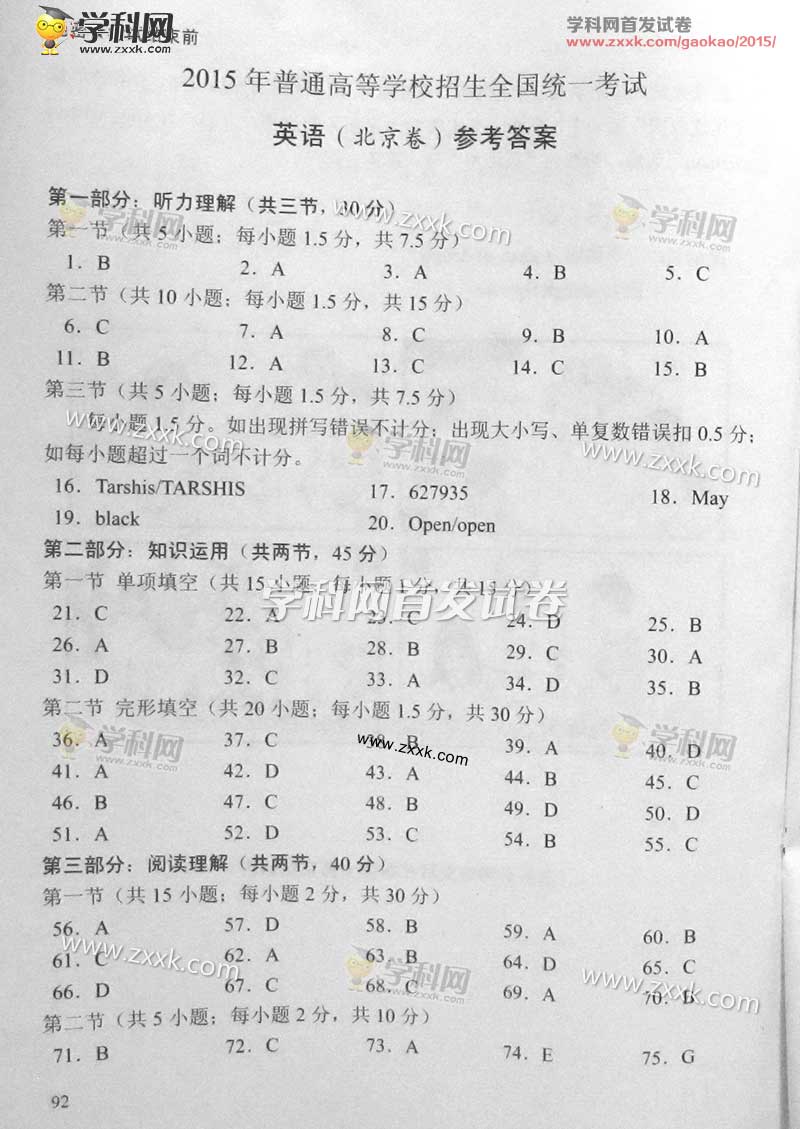 学科网
www.zxxk.com
束前
学科网首发试卷
www.zxxk.com/gaokao/2015/
2015 年普通高等学校招生全国统一考试
英语（北京卷）参考答案
第一部分：听力理解（共三节，30 分）
第一节（共 5 小题；每小题 1.5 分，共 7.5 分）
1. B 2. A 3. A 4. B 5. C
第二节（共 10 小题；每小题 1.5 分，共 15 分）
6. C 7. A 8. C 9. B 10. A
11. B 12. A 13. C 14. C 15. B
第三节（共 5 小题；每小题 1.5 分，共 7.5 分）
每小题 1.5 分。如出现拼写错误不计分；出现大小写、单复数错误扣 0.5 分；
如每小题超过一个词不计分。
16. Tarshis/TARSHIS 17. 627935 18. May
19. black 20. Open/open
第二部分：知识运用（共两节，45 分）
第一节 单项填空（共 15 小题；每小题 1 分，共 15 分）
学科网首发试卷
21. C 22. A 23. C 24. D 25. B
26. A 27. B 28. B 29. C 30. A
31. D 32. C 33. A 34. D 35. B
第二节 完形填空（共 20 小题；每小题 1.5 分，共 30 分）
36. A 37. C 38. B 39. A 40. D
41. A 42. D 43. A 44. B 45. C
46. B 47. C 48. B 49. D 50. D
51. A 52. D 53. C 54. B 55. C
第三部分：阅读理解（共两节，40 分）
第一节（共 15 小题；每小题 2 分，共 30 分）
56. A 57. D 58. B 59. A 60. B
61. C 62. A 63. B 64. D 65. C
66. D 67. C 68. C 69. A 70.
第二节（共 5 小题；每小题 2 分，共 10 分）
71. B 72. C 73. A 74. E 75. G
92